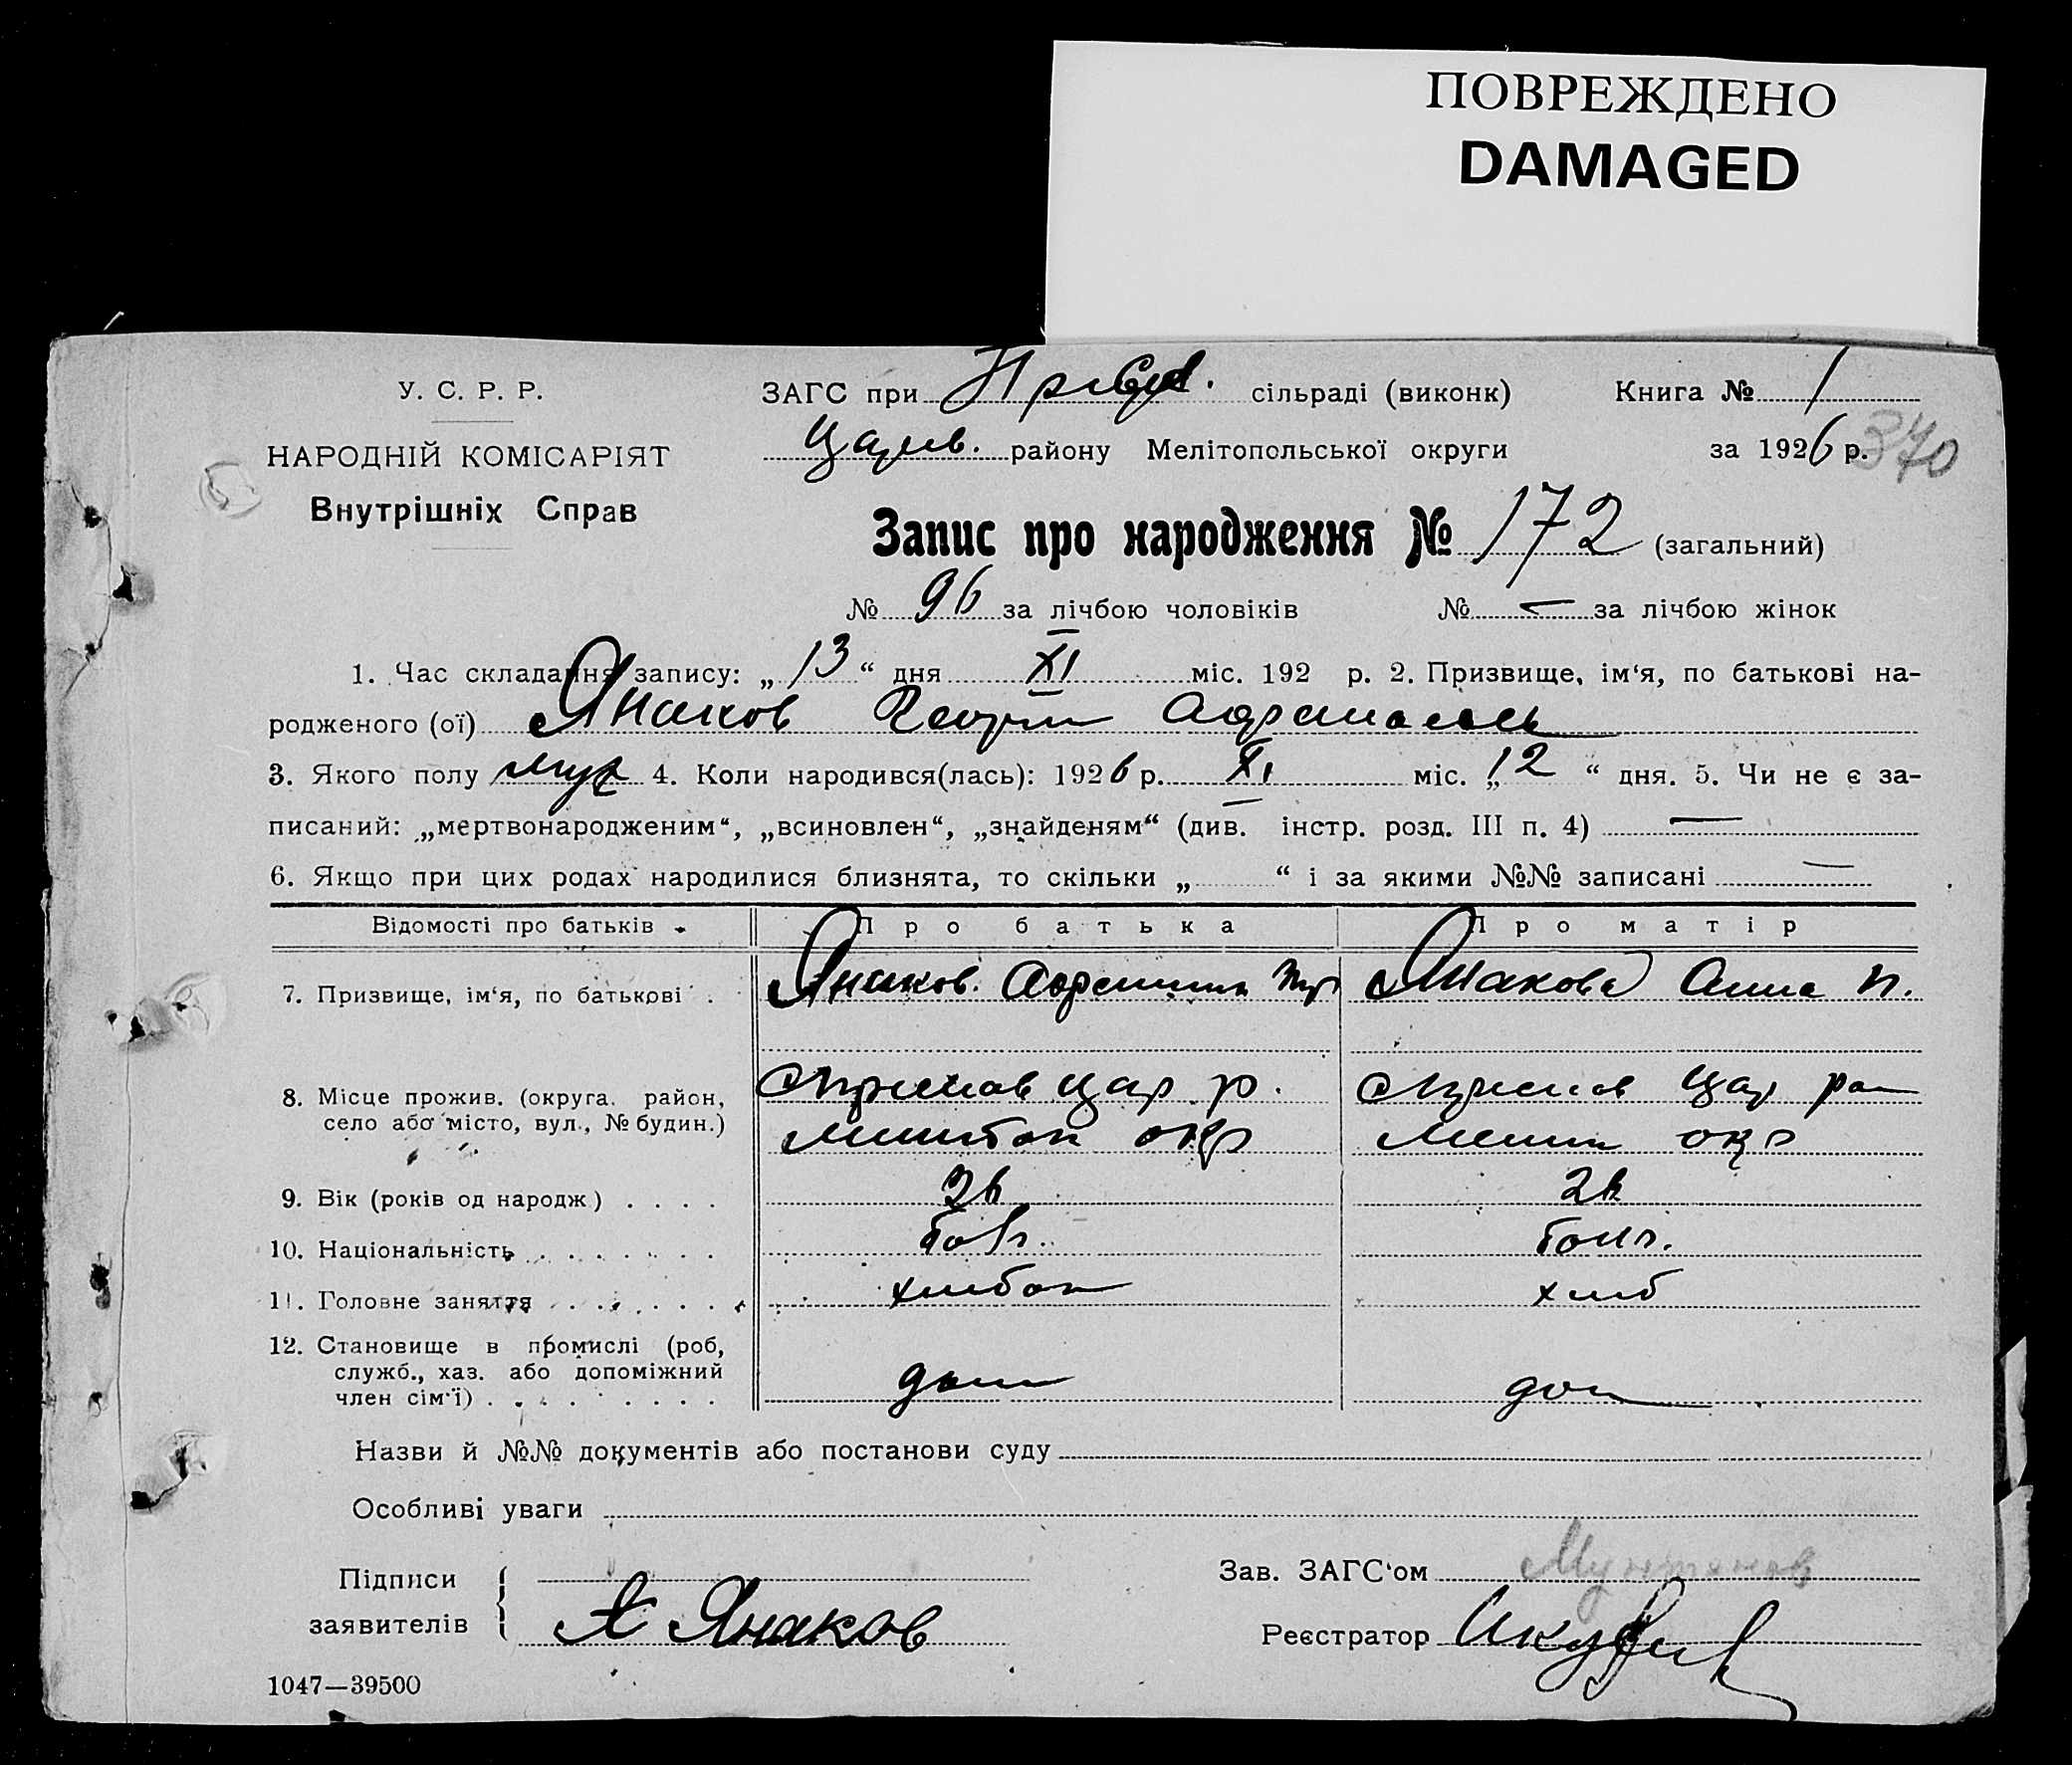 ПОВРЕЖДЕНО
DAMAGED
У. С. Р. Р.
НАРОДНІЙ КОМІСАРІЯТ
Внутрішніх Справ
ЗАГС при сільраді (виконк)
Книга № 1
району Мелітопольської округи
за 1926 р.
370
Запис про народження № 172 (загальний)
№ 96 за лічбою чоловіків № — за лічбою жінок
1. Час складання запису: „ 13 “ дня XI міс. 192 р. 2. Призвище, ім‘я, по батькові на-
родженого (ої) Янаков
3. Якого полу муж 4. Коли народився(лась): 1926 р. XI міс. „ 12 “ дня. 5. Чи не є за-
писаний: „мертвонародженим“, „всиновлен“, „знайденям“ (див. інстр. розд. III п. 4) —
6. Якщо при цих родах народилися близнята, то скільки „ “ і за якими №№ записані —
Відомості про батьків Про батька Про матір
7. Призвище, ім‘я, по батькові Янаков. Янакова Анна П.
8. Місце прожив. (округа, район, Цар. р. Цар
село або місто, вул., № будин.) окр окр
9. Вік (років од народж) 26
10. Національність болг. болг.
11. Головне заняття хліб
12. Становище в промислі (роб,
служб., хаз. або допоміжний
член сім‘ї) доп
Назви й №№ документів або постанови суду
Особливі уваги
Підписи
заявителів А Янаков
Зав. ЗАГС‘ом
Реєстратор
1047—39500